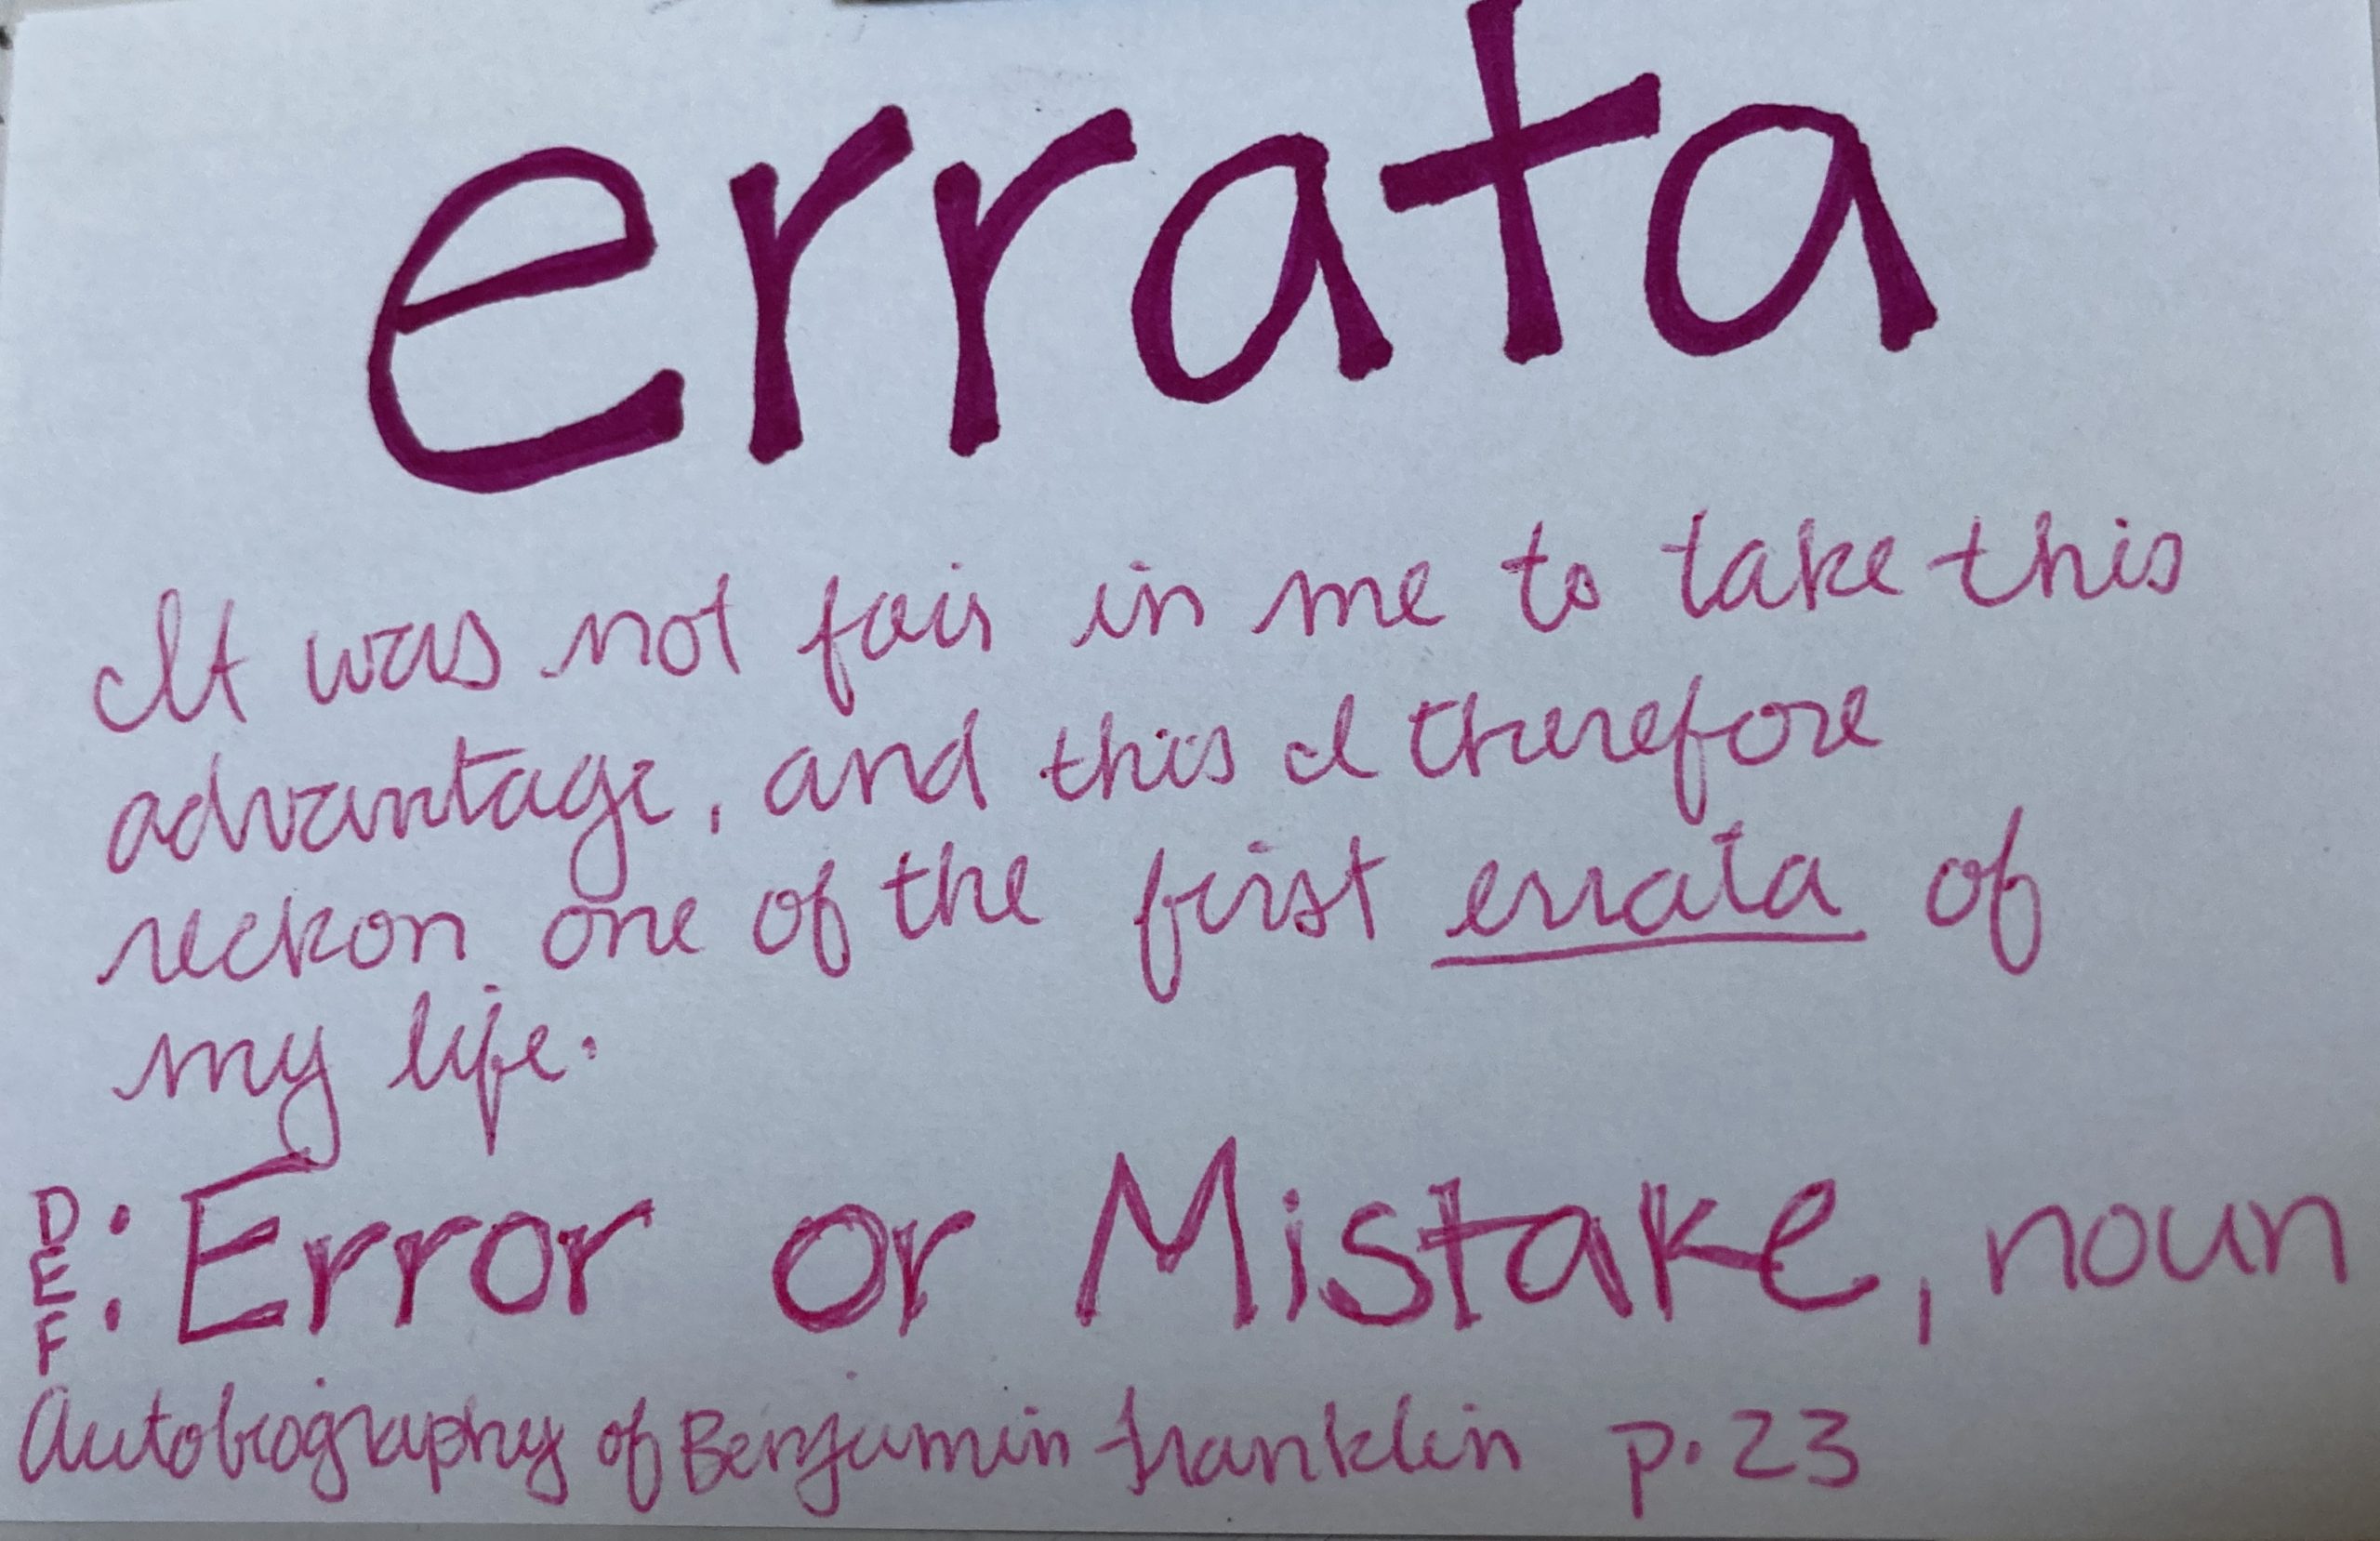 errata
It was not fair in me to take this
advantage, and this I therefore
reckon one of the first errata of
my life.
DEF: Error or Mistake, noun
Autobiography of Benjamin Franklin p. 23